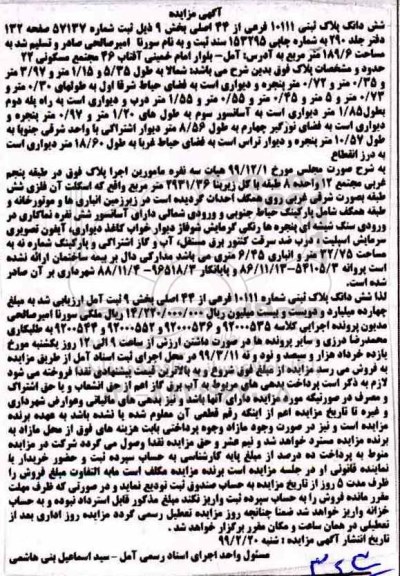 آگهی مزایده
شش دانگ پلاک ثبتی ۱۰۱۱۱ فرعی از ۴۴ اصلی بخش ۹ ذیل ثبت شماره ۵۷۱۳۷ صفحه ۱۳۲
دفتر جلد ۲۹۰ به شماره چاپی ۱۵۳۲۹۵ سند ثبت و به نام سورنا امیرصالحی صادر و تسلیم شد به
مساحت ۱۸۹/۶ متر مربع به آدرس: آمل- بلوار امام خمینی آفتاب ۴۶ مجتمع مسکونی ۲۲
حدود و مشخصات پلاک فوق بدین شرح می باشد: شمالا به طول ۵/۳۵ و ۱/۱۵ متر و ۳/۹۷ متر
و ۰/۳۵ متر و ۰/۷۲ متر پنجره و دیواری است به فضای حیاط شرقا اول به طولهای ۰/۳۰ متر و
۰/۷۳ متر و ۵ متر و ۰/۴۵ متر و ۰/۵۵ متر و ۱/۵۵ متر درب و دیواری است به راه پله دوم
بطول ۱/۸۵ متر دیواری است به آسانسور سوم به طول های ۱/۲۰ متر و ۰/۹۷ متر پنجره و
دیواری است به فضای نورگیر چهارم به طول ۸/۵۶ متر دیوار اشتراکی با واحد شرقی جنوبا به
طول ۱۰/۵۷ متر پنجره و دیوار تراس است به فضای حیاط غربا به طول ۱۸/۶۰ متر دیواری است
به درز انقطاع
به شرح صورت مجلس مورخ ۹۹/۱۲/۱ هیات سه نفره مامورین اجرا پلاک فوق در طبقه پنجم
غربی مجتمع ۱۲ واحده ۸ طبقه با کل زیربنا ۲۹۳۱/۳۶ متر مربع واقع که اسکلت آن فلزی شش
طبقه بصورت شرقی غربی روی همکف احداث گردیده است در زیرزمین انباری ها و موتورخانه و
طبقه همکف شامل پارکینگ حیاط جنوبی و ورودی شمالی دارای آسانسور شش نفره نماکاری در
ورودی سنگ شیشه ای پنجره ها رنگی گرمایش شوفاژ دیوار خواب کاغذ دیواری، آیفون تصویری
سرمایش اسپلیت، درب ضد سرقت کنتور برق مستقل، آب و گاز اشتراکی و پارکینگ شماره نه به
مساحت ۳۲/۷۵ متر و انباری ۶/۴۵ متری می باشد مدارکی دال بر بیمه ساختمان ارائه نشده
است پروانه ۵۴۱۰۵/۳-۸۶/۱۱/۱۳ و پایانکار ۹۶۵۱۸/۳-۸۸/۱۱/۴ شهرداری بر آن صادر
شده است.
لذا شش دانگ پلاک ثبتی شماره ۱۰۱۱۱ فرعی از ۴۴ اصلی بخش ۹ ثبت آمل ارزیابی شد به مبلغ
چهارده میلیارد و دویست و بیست میلیون ریال ۱۴/۲۲۰/۰۰۰/۰۰۰ ریال ملکی سورنا امیرصالحی
مدیون پرونده اجرایی کلاسه ۹۲۰۰۵۳۵ و ۹۲۰۰۵۳۶ و ۹۲۰۰۵۵۲ و ۹۲۰۰۵۴۴ به طلبکاری
محمدرضا درزی و سایر پرونده ها در صورت داشتن ارزش از ساعت ۹ الی ۱۲ روز یکشنبه مورخ
یازده خرداد هزار و سیصد و نود و نه ۹۹/۳/۱۱ در محل اجرای ثبت اسناد آمل از طریق مزایده
به فروش می رسد مزایده از مبلغ فوق شروع و به بالاترین قیمت پیشنهادی نقدا فروخته می شود
لازم به ذکر است پرداخت بدهی های مربوط به آب برق گاز اعم از حق انشعاب و یا حق اشتراک
و مصرف در صورتیکه مورد مزایده دارای آنها باشد و نیز بدهی های مالیاتی وعوارض شهرداری
و غیره تا تاریخ مزایده اعم از اینکه رقم قطعی آن معلوم شده یا نشده باشد به عهده برنده
مزایده است و نیز در صورت وجود مازاد وجوه پرداختی بابت هزینه های فوق از محل مازاد به
برنده مزایده مسترد خواهد شد و نیم عشر و حق مزایده نقدا وصول می گردد شرکت در مزایده
منوط به پرداخت ده درصد از مبلغ پایه کارشناسی به حساب سپرده ثبت و حضور خریدار یا
نماینده قانونی او در جلسه مزایده است برنده مزایده مکلف است مابه التفاوت مبلغ فروش را
ظرف مدت ۵ روز از تاریخ مزایده به حساب صندوق ثبت تودیع نماید و در صورتی که ظرف مهلت
مقرر مانده فروش را به حساب سپرده ثبت واریز نکند مبلغ مذکور قابل استرداد نبوده و به حساب
خزانه واریز خواهد شد ضمنا چنانچه روز مزایده تعطیل رسمی گردد مزایده روز اداری بعد از
تعطیلی در همان ساعت و مکان مقرر برگزار خواهد شد.
تاریخ انتشار آگهی مزایده: شنبه ۹۹/۲/۲۰
مسئول واحد اجرای اسناد رسمی آمل - سید اسماعیل بنی هاشمی